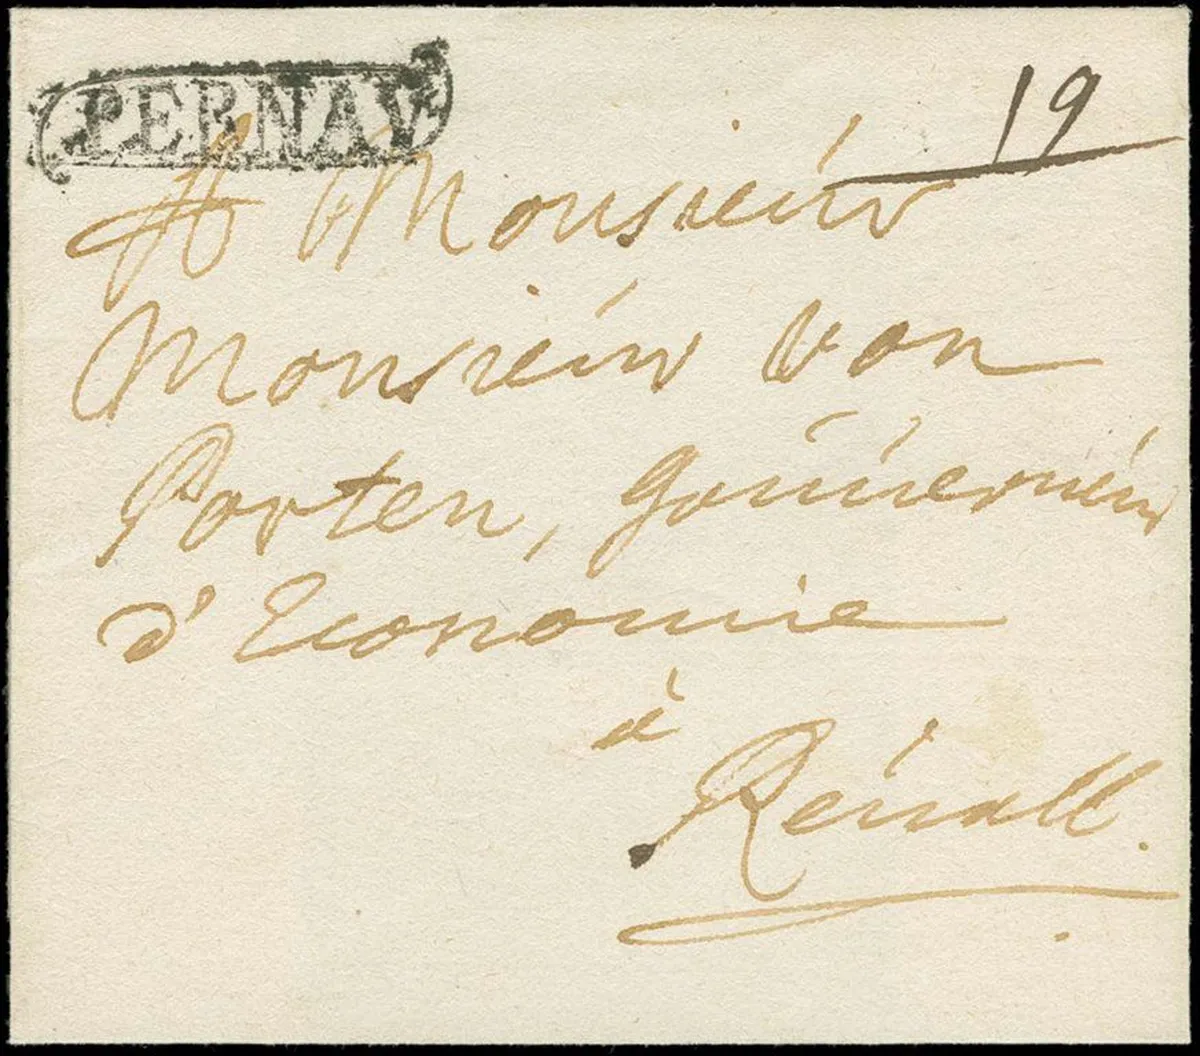 PERNAV
19
A Monsieur
Monsieur von
Porten, gouverneur
d'Economie
à
Révall.